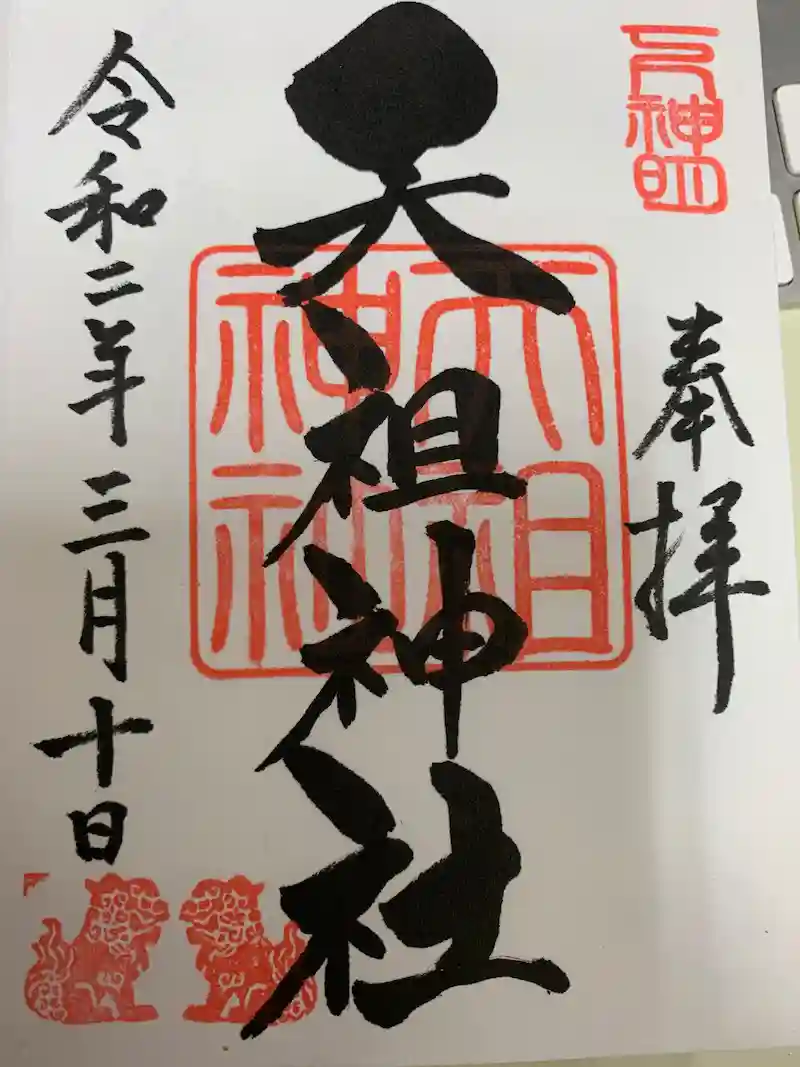 元神明
奉拝
天祖神社
天祖
神社
令和二年三月十日